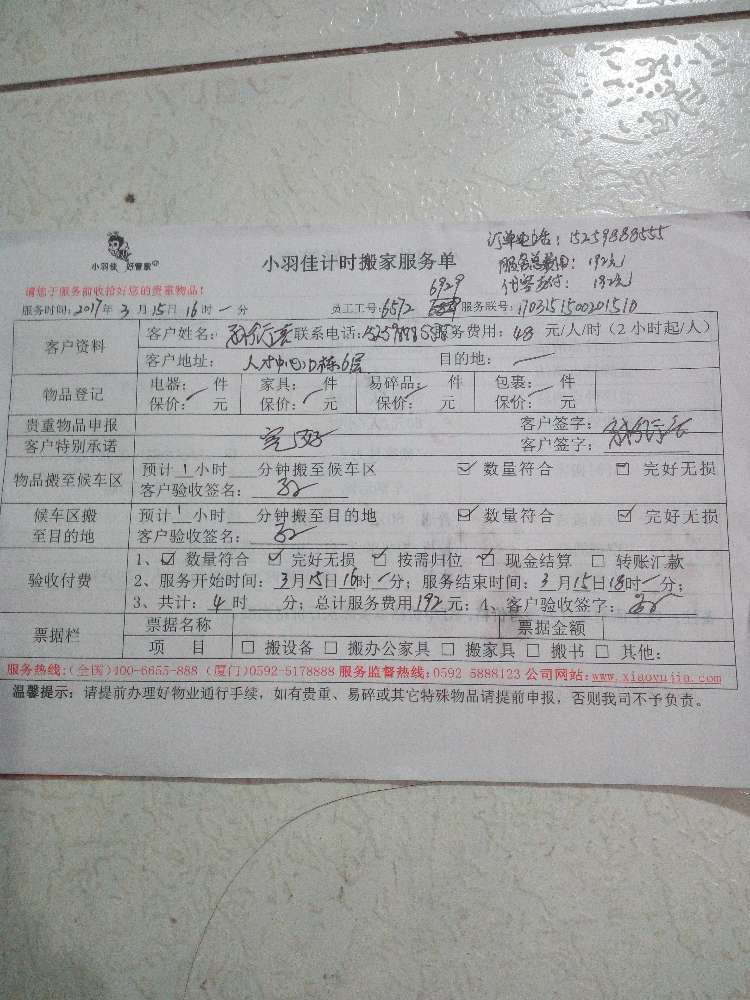 订单电话：15259888555
服务总费用：192元
代客支付：192元
小羽佳 好管家
小羽佳计时搬家服务单
请您于服务前收拾好您的贵重物品！
6929
服务时间：2017年 3月15日16时 - 分 员工工号：6572 服务联号：1703151500201510
客户资料
客户姓名： 联系电话：15259888555 服务费用：48 元/人/时（2小时起/人）
客户地址：人才中心D栋6层 目的地：
物品登记
电器： 件 家具： 件 易碎品： 件 包裹： 件
保价： 元 保价： 元 保价： 元 保价： 元
贵重物品申报 客户签字：
客户特别承诺 完好 客户签字：
物品搬至候车区
预计 1 小时 分钟搬至候车区 ☑ 数量符合 ☑ 完好无损
客户验收签名：
候车区搬至目的地
预计 1 小时 分钟搬至目的地 ☑ 数量符合 ☑ 完好无损
客户验收签名：
验收付费
1、☑ 数量符合 ☑ 完好无损 ☑ 按需归位 ☑ 现金结算 □ 转账汇款
2、服务开始时间：3月15日16时 - 分；服务结束时间：3 月15日18时 - 分；
3、共计：4 时 分；总计服务费用192元；4、客户验收签字：
票据栏
票据名称 票据金额
项 目 □ 搬设备 □ 搬办公家具 □ 搬家具 □ 搬书 □ 其他：
服务热线：（全国）400-6655-888（厦门）0592-5178888 服务监督热线：0592 5888123 公司网站：www.xiaoyujia.com
温馨提示：请提前办理好物业通行手续，如有贵重、易碎或其它特殊物品请提前申报，否则我司不予负责。